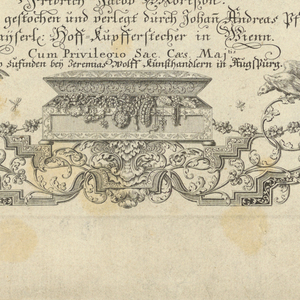 Jacob
gestochen und verlegt durch Johañ Andreas Pf
aÿserl: Hoff-Kupfferstecher in Wienn.
Cum Privilegio Sac. Cæs. Maj.tis
zufinden beÿ Jeremias Wolff Kunsthandlern in Augspurg.